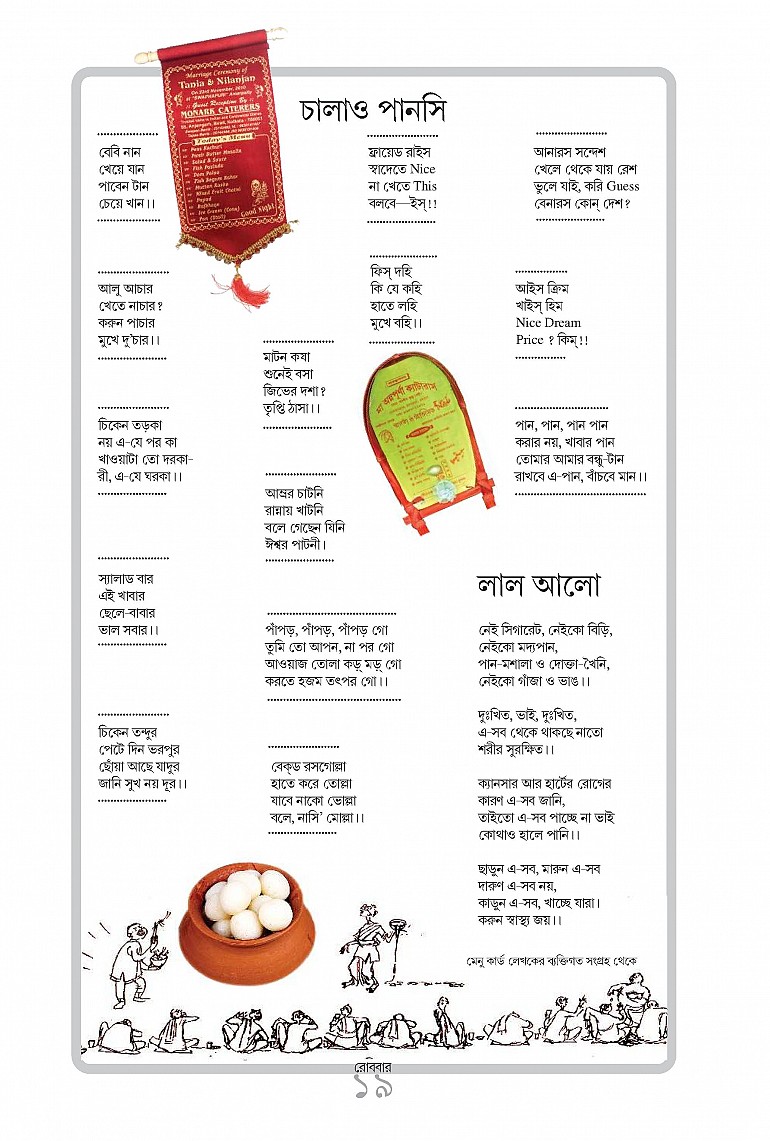 Marriage Ceremony of
Tania & Nilanjan
On 23rd November, 2010
Guest Reception By :
MONARK CATERERS
Today's Menu
Salad & Sauce
Mutton Kasha
Mixed Fruit Chatni
Papad
Ice Cream (Cone)
Pan (Stall)
Good Night
চালাও পানসি
বেবি নান
খেয়ে যান
পাবেন টান
চেয়ে খান।।
আলু আচার
খেতে নাচার?
করুন পাচার
মুখে দু'চার।।
চিকেন তড়কা
নয় এ-যে পর কা
খাওয়াটা তো দরকা-
রী, এ-যে ঘরকা।।
স্যালাড বার
এই খাবার
ছেলে-বাবার
ভাল সবার।।
চিকেন তন্দুর
পেটে দিন ভরপুর
ছোঁয়া আছে যাদুর
জানি সুখ নয় দূর।।
মাটন কষা
শুনেই বসা
জিভের দশা?
তৃপ্তি ঠাসা।।
আম্রর চাটনি
রান্নায় খাটনি
বলে গেছেন যিনি
ঈশ্বর পাটনী।
পাঁপড়, পাঁপড়, পাঁপড় গো
তুমি তো আপন, না পর গো
আওয়াজ তোলা কড়্ মড়্ গো
করতে হজম তৎপর গো।।
বেক্‌ড রসগোল্লা
হাতে করে তোল্লা
যাবে নাকো ভোল্লা
বলে, নাসি' মোল্লা।।
ফ্রায়েড রাইস
স্বাদেতে Nice
না খেতে This
বলবে—ইস্!!
ফিস্ দহি
কি যে কহি
হাতে লহি
মুখে বহি।।
মা অন্নপূর্ণা ক্যাটারাস
আনারস সন্দেশ
খেলে থেকে যায় রেশ
ভুলে যাই, করি Guess
বেনারস কোন্ দেশ?
আইস ক্রিম
খাইস্ হিম
Nice Dream
Price ? কিম্!!
পান, পান, পান পান
করার নয়, খাবার পান
তোমার আমার বন্ধু-টান
রাখবে এ-পান, বাঁচবে মান।।
লাল আলো
নেই সিগারেট, নেইকো বিড়ি,
নেইকো মদ্যপান,
পান-মশালা ও দোক্তা-খৈনি,
নেইকো গাঁজা ও ভাঙ।।
দুঃখিত, ভাই, দুঃখিত,
এ-সব থেকে থাকছে নাতো
শরীর সুরক্ষিত।।
ক্যানসার আর হার্টের রোগের
কারণ এ-সব জানি,
তাইতো এ-সব পাচ্ছে না ভাই
কোথাও হালে পানি।।
ছাড়ুন এ-সব, মারুন এ-সব
দারুণ এ-সব নয়,
কাড়ুন এ-সব, খাচ্ছে যারা।
করুন স্বাস্থ্য জয়।।
মেনু কার্ড লেখকের ব্যক্তিগত সংগ্রহ থেকে
রোববার
১৯